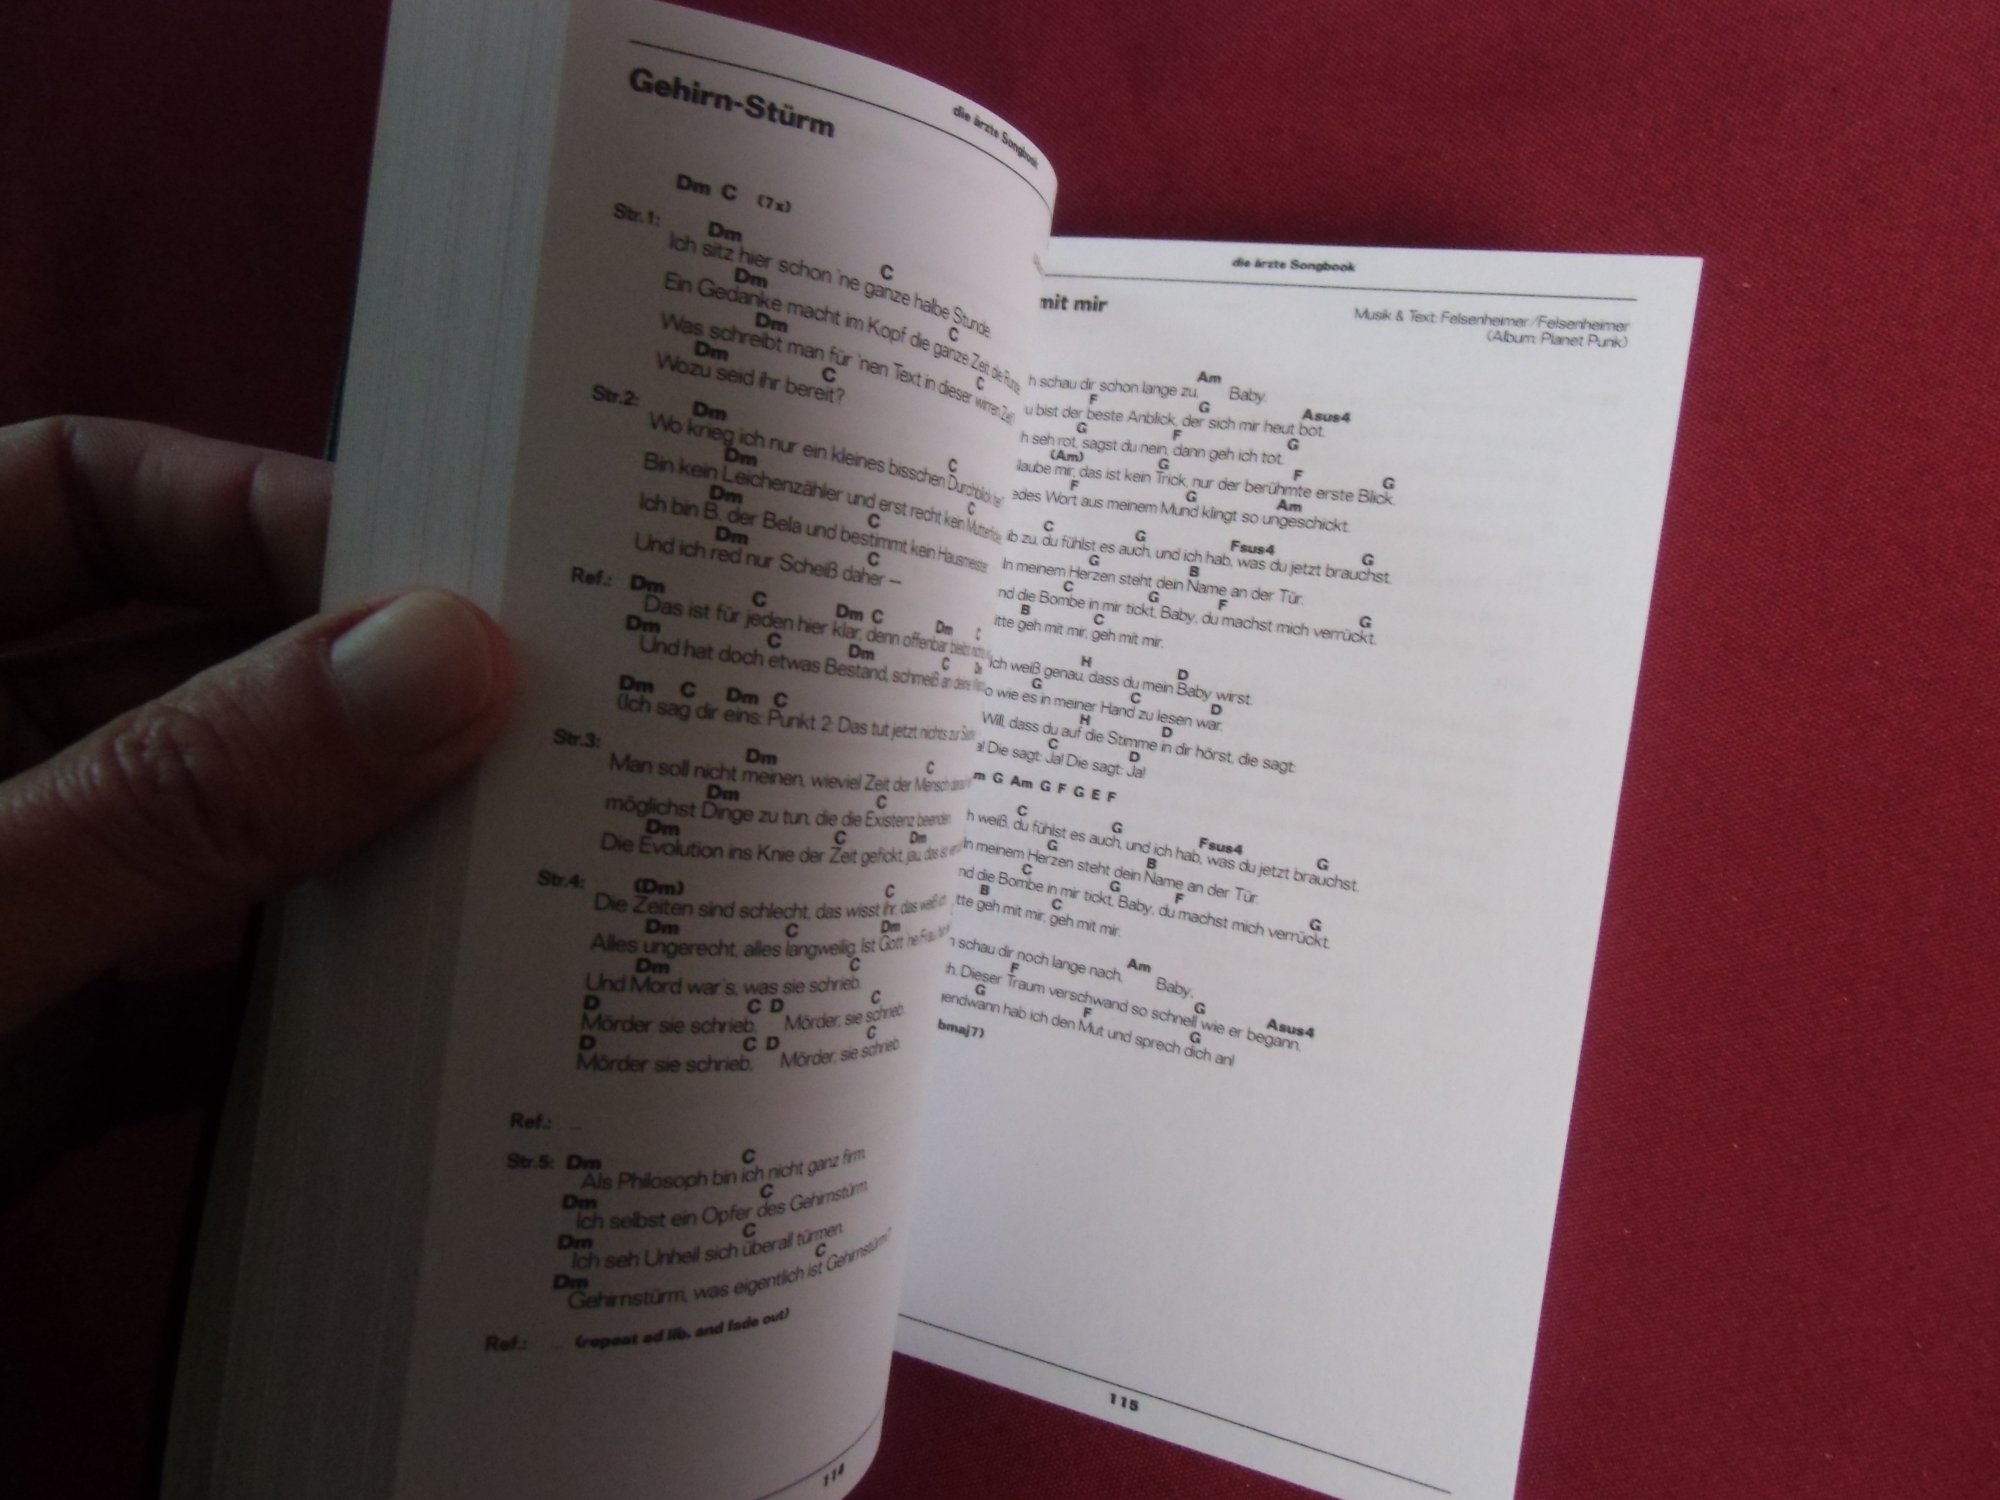 die ärzte Songbook
Gehirn-Stürm
Dm C (7x)
Str.1: Dm C
Ich sitz hier schon 'ne ganze halbe Stunde.
Dm C
Ein Gedanke macht im Kopf die ganze Zeit die
Dm C
Was schreibt man für 'nen Text in dieser wirren
Dm C
Wozu seid ihr bereit?
Str.2: Dm C
Wo krieg ich nur ein kleines bisschen
Dm C
Bin kein Leichenzähler und erst recht kein
Dm C
Ich bin B. der Bela und bestimmt kein Hausmeister.
Dm C
Und ich red nur Scheiß daher –
Ref.: Dm C Dm C Dm C
Das ist für jeden hier klar, denn offenbar bleibt
Dm C Dm C Dm
Und hat doch etwas Bestand, schmeiß an deine
Dm C Dm C
(Ich sag dir eins: Punkt 2: Das tut jetzt nichts zur
Str.3: Dm C
Man soll nicht meinen, wieviel Zeit der Mensch
Dm C
möglichst Dinge zu tun, die die Existenz beenden
Dm C Dm
Die Evolution ins Knie der Zeit gefickt, jau, das
Str.4: (Dm) C
Die Zeiten sind schlecht, das wisst ihr, das weiß
Dm C Dm
Alles ungerecht, alles langweilig. Ist Gott 'ne Frau,
Dm C
Und Mord war's, was sie schrieb.
D C D C
Mörder sie schrieb, Mörder, sie schrieb.
D C D C
Mörder sie schrieb, Mörder, sie schrieb.
Ref.: ...
Str.5: Dm C
Als Philosoph bin ich nicht ganz firm.
Dm C
Ich selbst ein Opfer des Gehirnstürm.
Dm C
Ich seh Unheil sich überall türmen.
Dm C
Gehirnstürm, was eigentlich ist Gehirnstürm?
Ref.: ... (repeat ad lib. and fade out)
114
die ärzte Songbook
mit mir
Musik & Text: Felsenheimer/Felsenheimer
(Album: Planet Punk)
Am
h schau dir schon lange zu, Baby.
F G Asus4
u bist der beste Anblick, der sich mir heut bot.
G F G
h seh rot, sagst du nein, dann geh ich tot.
(Am) G F G
laube mir, das ist kein Trick, nur der berühmte erste Blick.
F G Am
edes Wort aus meinem Mund klingt so ungeschickt.
C G Fsus4 G
ib zu, du fühlst es auch, und ich hab, was du jetzt brauchst.
G B
In meinem Herzen steht dein Name an der Tür.
C G F G
nd die Bombe in mir tickt, Baby, du machst mich verrückt.
B C
itte geh mit mir, geh mit mir.
H D
Ich weiß genau, dass du mein Baby wirst.
G C D
o wie es in meiner Hand zu lesen war.
H D
Will, dass du auf die Stimme in dir hörst, die sagt:
C D
a! Die sagt: Ja! Die sagt: Ja!
m G Am G F G E F
C G Fsus4 G
h weiß, du fühlst es auch, und ich hab, was du jetzt brauchst.
G B
In meinem Herzen steht dein Name an der Tür.
C G F G
nd die Bombe in mir tickt, Baby, du machst mich verrückt.
B C
tte geh mit mir, geh mit mir.
Am
schau dir noch lange nach, Baby.
F G Asus4
h. Dieser Traum verschwand so schnell wie er begann.
G F G
endwann hab ich den Mut und sprech dich an!
bmaj7)
115